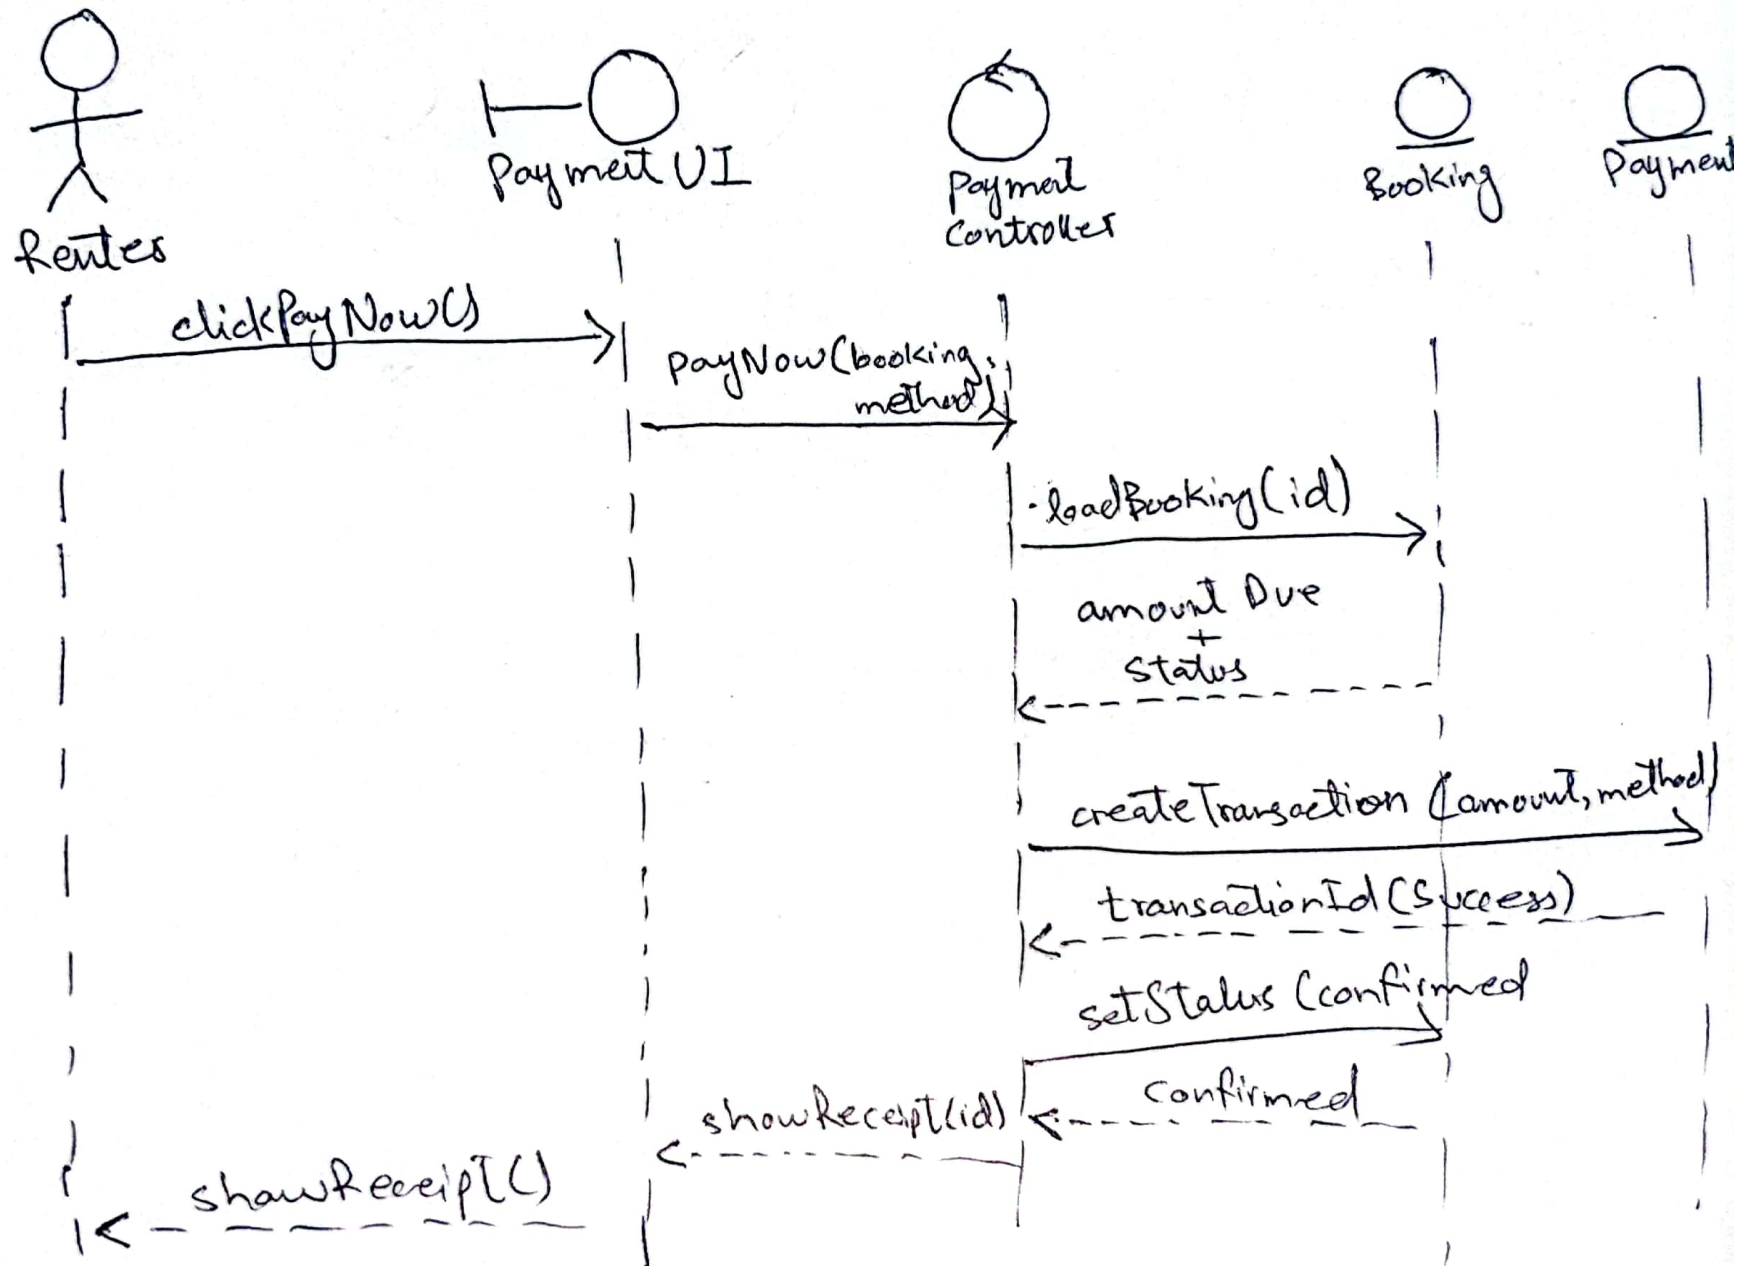 Payment UI
Payment
Controller
Booking
Payment
Renter
clickPayNow()
payNow(booking,
method)
loadBooking(id)
amount Due
+
Status
createTransaction (amount, method)
transactionId (Success)
setStatus (confirmed
Confirmed
showReceipt(id)
showReceipt()